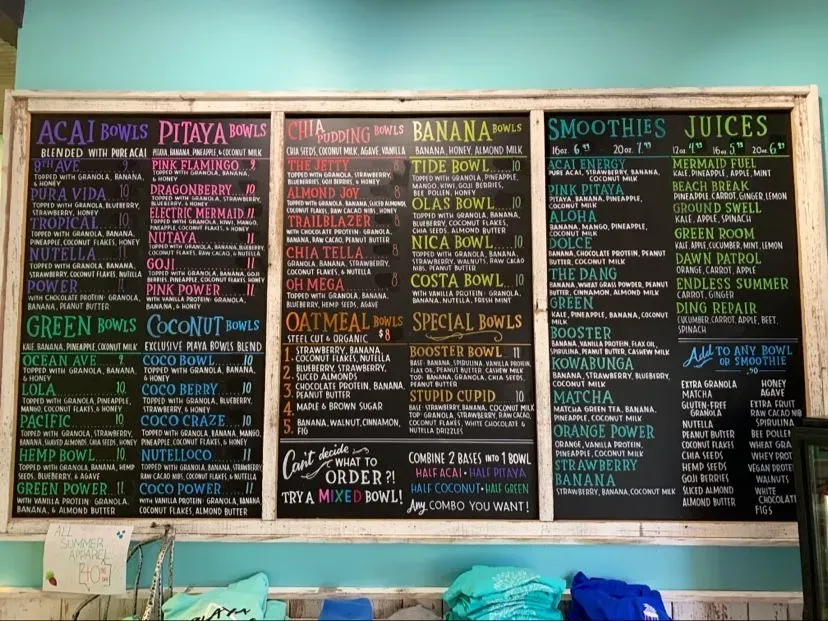 ACAI BOWLS
BLENDED WITH PURE ACAI
8TH AVE 9
TOPPED WITH GRANOLA, BANANA,
& HONEY
PURA VIDA 10
TOPPED WITH GRANOLA, BLUEBERRY,
STRAWBERRY, HONEY
TROPICAL 10
TOPPED WITH GRANOLA, BANANA,
PINEAPPLE, COCONUT FLAKES, HONEY
NUTELLA 11
TOPPED WITH GRANOLA, BANANA,
STRAWBERRY, COCONUT FLAKES, NUTELLA
POWER 11
WITH CHOCOLATE PROTEIN- GRANOLA,
BANANA, PEANUT BUTTER
GREEN BOWLS
KALE, BANANA, PINEAPPLE, COCONUT MILK
OCEAN AVE 9
TOPPED WITH GRANOLA, BANANA,
& HONEY
LOLA 10
TOPPED WITH GRANOLA, PINEAPPLE,
MANGO, COCONUT FLAKES, & HONEY
PACIFIC 10
TOPPED WITH GRANOLA, STRAWBERRY,
BANANA, SLICED ALMONDS, CHIA SEEDS, HONEY
HEMP BOWL 10
TOPPED WITH GRANOLA, BANANA, HEMP
SEEDS, BLUEBERRY, & AGAVE
GREEN POWER 11
WITH VANILLA PROTEIN- GRANOLA,
BANANA, & ALMOND BUTTER
PITAYA BOWLS
PITAYA, BANANA, PINEAPPLE & COCONUT MILK
PINK FLAMINGO 9
TOPPED WITH GRANOLA, BANANA,
& HONEY
DRAGONBERRY 10
TOPPED WITH GRANOLA, BLUEBERRY,
STRAWBERRY, & HONEY
ELECTRIC MERMAID 11
TOPPED WITH GRANOLA, KIWI, MANGO,
PINEAPPLE, & HONEY
NUTAYA 11
TOPPED WITH GRANOLA, BANANA, BLUEBERRY,
COCONUT FLAKES, & NUTELLA
GOJI 11
TOPPED WITH GRANOLA, BANANA, GOJI
BERRIES, PINEAPPLE, COCONUT FLAKES, & HONEY
PINK POWER 11
WITH VANILLA PROTEIN- GRANOLA,
BANANA, & HONEY
COCONUT BOWLS
EXCLUSIVE PLAYA BOWLS BLEND
COCO BOWL 10
TOPPED WITH GRANOLA, BANANA,
& HONEY
COCO BERRY 10
TOPPED WITH GRANOLA, BLUEBERRY,
STRAWBERRY, & HONEY
COCO CRAZE 10
TOPPED WITH GRANOLA, BANANA, MANGO,
PINEAPPLE, COCONUT FLAKES, & HONEY
NUTELLOCO 11
TOPPED WITH GRANOLA, BANANA, STRAWBERRY
RAW CACAO NIBS, COCONUT FLAKES, & NUTELLA
COCO POWER 11
WITH VANILLA PROTEIN- GRANOLA,
BANANA, & ALMOND BUTTER
CHIA PUDDING BOWLS
CHIA SEEDS, COCONUT MILK, AGAVE, VANILLA
THE JETTY 8
TOPPED WITH GRANOLA, STRAWBERRY,
BLUEBERRIES, GOJI BERRIES, & HONEY
ALMOND JOY 8
TOPPED WITH GRANOLA, BANANA, SLICED ALMONDS
COCONUT FLAKES, RAW CACAO NIBS, HONEY
TRAILBLAZER 8
TOPPED WITH CHOCOLATE PROTEIN, GRANOLA,
BANANA, RAW CACAO, PEANUT BUTTER
CHIA TELLA 8
GRANOLA, BANANA, STRAWBERRY,
COCONUT FLAKES, & NUTELLA
OH MEGA 8
TOPPED WITH GRANOLA, BANANA,
BLUEBERRY, HEMP SEEDS, AGAVE
OATMEAL BOWLS
STEEL CUT & ORGANIC $8
1. STRAWBERRY, BANANA,
COCONUT FLAKES, NUTELLA
2. BLUEBERRY, STRAWBERRY,
SLICED ALMONDS
3. CHOCOLATE PROTEIN, BANANA,
PEANUT BUTTER
4. MAPLE & BROWN SUGAR
5. BANANA, WALNUT, CINNAMON,
FIG
BANANA BOWLS
BANANA, HONEY, ALMOND MILK
TIDE BOWL 10
TOPPED WITH GRANOLA, PINEAPPLE,
MANGO, KIWI, GOJI BERRIES,
BEE POLLEN, HONEY
OLAS BOWL 10
TOPPED WITH GRANOLA, BANANA,
BLUEBERRY, COCONUT FLAKES,
CHIA SEEDS, ALMOND BUTTER
NICA BOWL 10
TOPPED WITH GRANOLA, BANANA,
STRAWBERRY, WALNUTS, RAW CACAO
NIBS, PEANUT BUTTER
COSTA BOWL 10
WITH VANILLA PROTEIN- GRANOLA,
BANANA, NUTELLA, FRESH MINT
SPECIAL BOWLS
BOOSTER BOWL 11
BASE- BANANA, SPIRULINA, VANILLA PROTEIN,
FLAX OIL, PEANUT BUTTER, CASHEW MILK
TOP- BANANA, GRANOLA, CHIA SEEDS,
PEANUT BUTTER
STUPID CUPID 10
BASE- STRAWBERRY, BANANA, COCONUT MILK
TOP- GRANOLA, STRAWBERRY, RAW CACAO,
COCONUT FLAKES, WHITE CHOCOLATE &
NUTELLA DRIZZLES
Can't decide
WHAT TO
ORDER?!
TRY A MIXED BOWL!
COMBINE 2 BASES INTO 1 BOWL
HALF ACAI • HALF PITAYA
HALF COCONUT • HALF GREEN
Any COMBO YOU WANT!
SMOOTHIES
16oz. 6.49 20oz. 7.49
ACAI ENERGY
PURE ACAI, STRAWBERRY, BANANA,
COCONUT MILK
PINK PITAYA
PITAYA, BANANA, PINEAPPLE,
COCONUT MILK
ALOHA
BANANA, MANGO, PINEAPPLE,
COCONUT MILK
DOLCE
BANANA, CHOCOLATE PROTEIN, PEANUT
BUTTER, COCONUT MILK
THE DANG
BANANA, WHEAT GRASS POWDER, PEANUT
BUTTER, CINNAMON, ALMOND MILK
GREEN
KALE, PINEAPPLE, BANANA, COCONUT
MILK
BOOSTER
BANANA, VANILLA PROTEIN, FLAX OIL,
SPIRULINA, PEANUT BUTTER, CASHEW MILK
KOWABUNGA
BANANA, STRAWBERRY, BLUEBERRY,
COCONUT MILK
MATCHA
MATCHA GREEN TEA, BANANA,
PINEAPPLE, COCONUT MILK
ORANGE POWER
ORANGE, VANILLA PROTEIN,
PINEAPPLE, COCONUT MILK
STRAWBERRY
BANANA
STRAWBERRY, BANANA, COCONUT MILK
JUICES
12oz 16oz 5 20oz 6
MERMAID FUEL
KALE, PINEAPPLE, APPLE, MINT
BEACH BREAK
PINEAPPLE, CARROT, GINGER, LEMON
GROUND SWELL
KALE, APPLE, SPINACH
GREEN ROOM
KALE, APPLE, CUCUMBER, MINT, LEMON
DAWN PATROL
ORANGE, CARROT, APPLE
ENDLESS SUMMER
CARROT, GINGER
DING REPAIR
CUCUMBER, CARROT, APPLE, BEET,
SPINACH
Add TO ANY BOWL
OR SMOOTHIE
.90
EXTRA GRANOLA
MATCHA
GLUTEN-FREE
GRANOLA
NUTELLA
PEANUT BUTTER
COCONUT FLAKES
CHIA SEEDS
HEMP SEEDS
GOJI BERRIES
SLICED ALMOND
ALMOND BUTTER
HONEY
AGAVE
EXTRA FRUIT
RAW CACAO NIB
SPIRULINA
BEE POLLEN
WHEAT GRA
WHEY PROT
VEGAN PROTEI
WALNUTS
WHITE
CHOCOLAT
FIGS
ALL
SUMMER
APPAREL